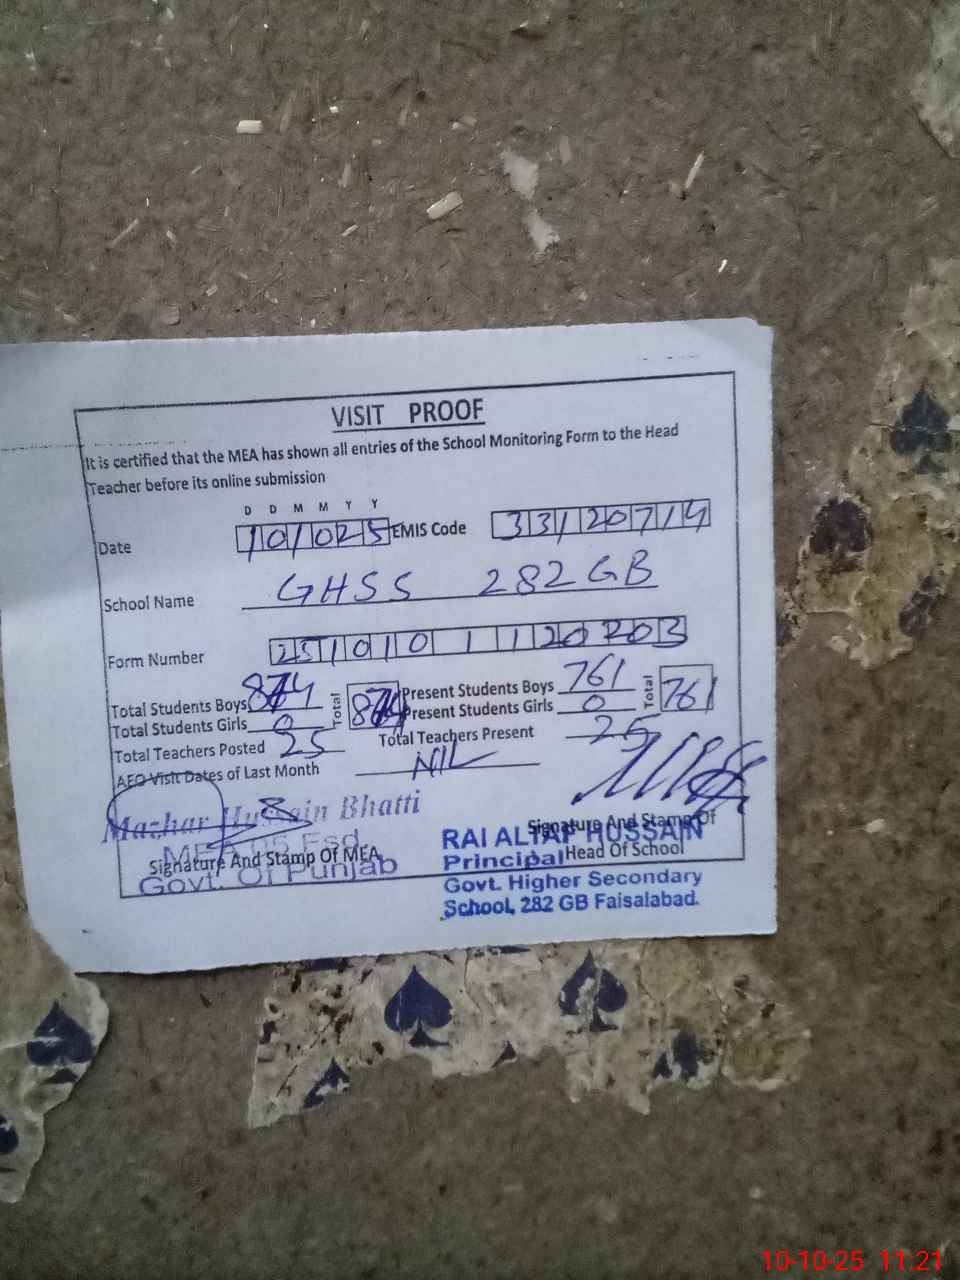 VISIT PROOF
It is certified that the MEA has shown all entries of the School Monitoring Form to the Head
Teacher before its online submission
D D M M Y Y
Date 101025 EMIS Code 33120714
School Name GHSS 282 GB
Form Number
Total Students Boys Total Present Students Boys 761 Total 761
Total Students Girls 0 Present Students Girls 0
Total Teachers Posted 25 Total Teachers Present 25
AEO Visit Dates of Last Month NIL
Mazhar Hussain Bhatti
MEA 05 Fsd
Signature And Stamp Of MEA
Govt. Of Punjab
Signature And Stamp Of
RAI ALTAF HUSSAIN
Principal Head Of School
Govt. Higher Secondary
School, 282 GB Faisalabad.
10-10-25 11:21